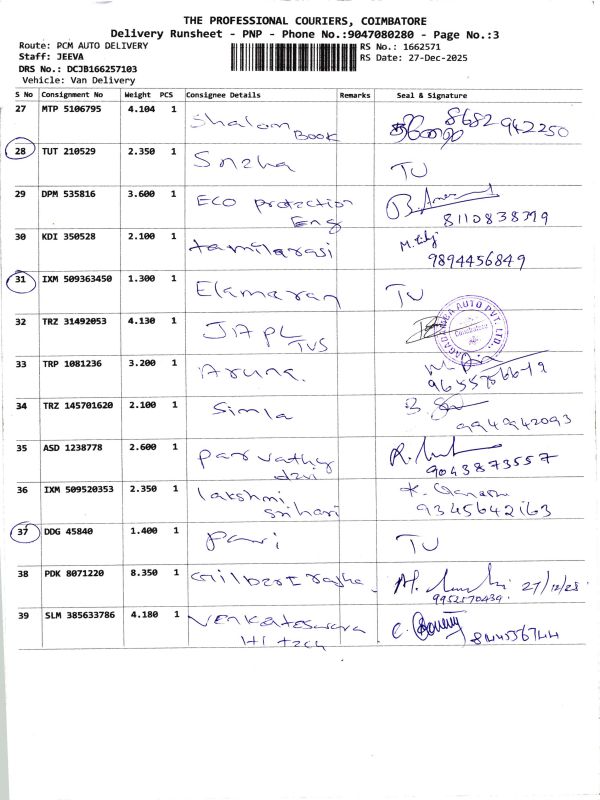 THE PROFESSIONAL COURIERS, COIMBATORE
Delivery Runsheet - PNP - Phone No.:9047080280 - Page No.:3
Route: PCM AUTO DELIVERY
Staff: JEEVA
DRS No.: DCJB166257103
Vehicle: Van Delivery
RS No.: 1662571
RS Date: 27-Dec-2025
S No Consignment No Weight PCS Consignee Details Remarks Seal & Signature
27 MTP 5106795 4.104 1 Shalom Book 8682942250
28 TUT 210529 2.350 1 Snzha TU
29 DPM 535816 3.600 1 ECO protection Eng
30 KDI 350528 2.100 1 tamilarasi 9894456849
31 IXM 509363450 1.300 1 Elamaran TU
32 TRZ 31492053 4.130 1 JAPL TVS JAGADAMBA AUTO PVT. LTD. Coimbatore
33 TRP 1081236 3.200 1 Aruna.
34 TRZ 145701620 2.100 1 Simla 9949942093
35 ASD 1238778 2.600 1 parvathy dzvi 9043873557
36 IXM 509520353 2.350 1 lakshmi srihari 9345642163
37 DDG 45840 1.400 1 pavi TU
38 PDK 8071220 8.350 1 Gilbert 9952570439.
39 SLM 385633786 4.180 1 Venkateswara Hi tzch